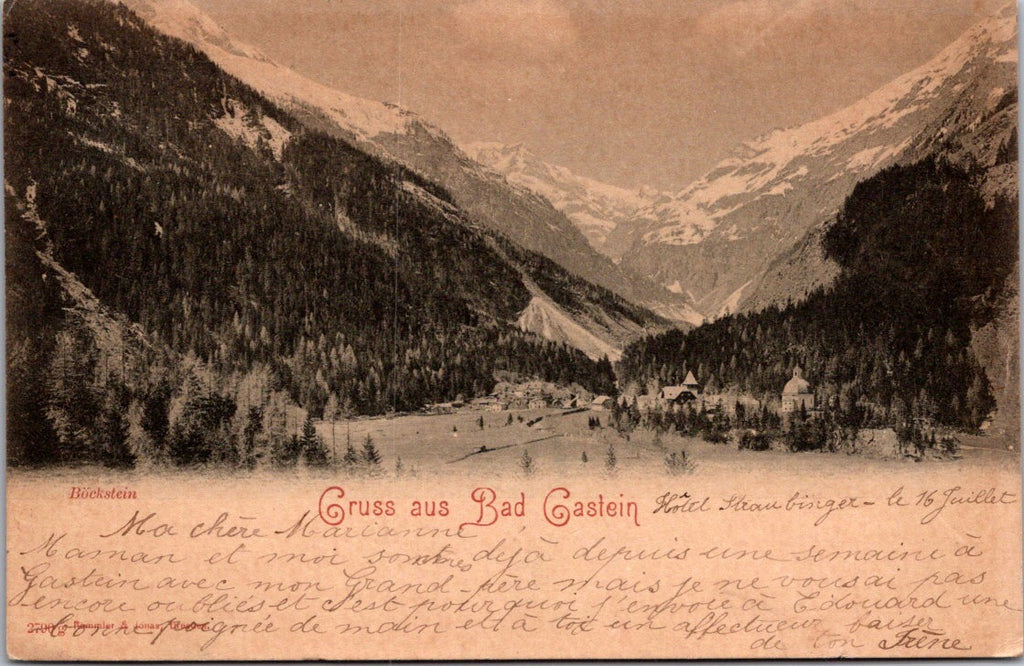 Böckstein
Gruss aus Bad Gastein
Hôtel Straubinger - le 16 Juillet
Ma chère Marianne
Maman et moi sommes déjà depuis une semaine à
Gastein avec mon Grand-père mais je ne vous ai pas
encore oubliés et c'est pourquoi j'envoie à Edouard une
bonne poignée de main et à toi un affectueux baiser
de ton Irène
Remmler & Jonas, Dresden